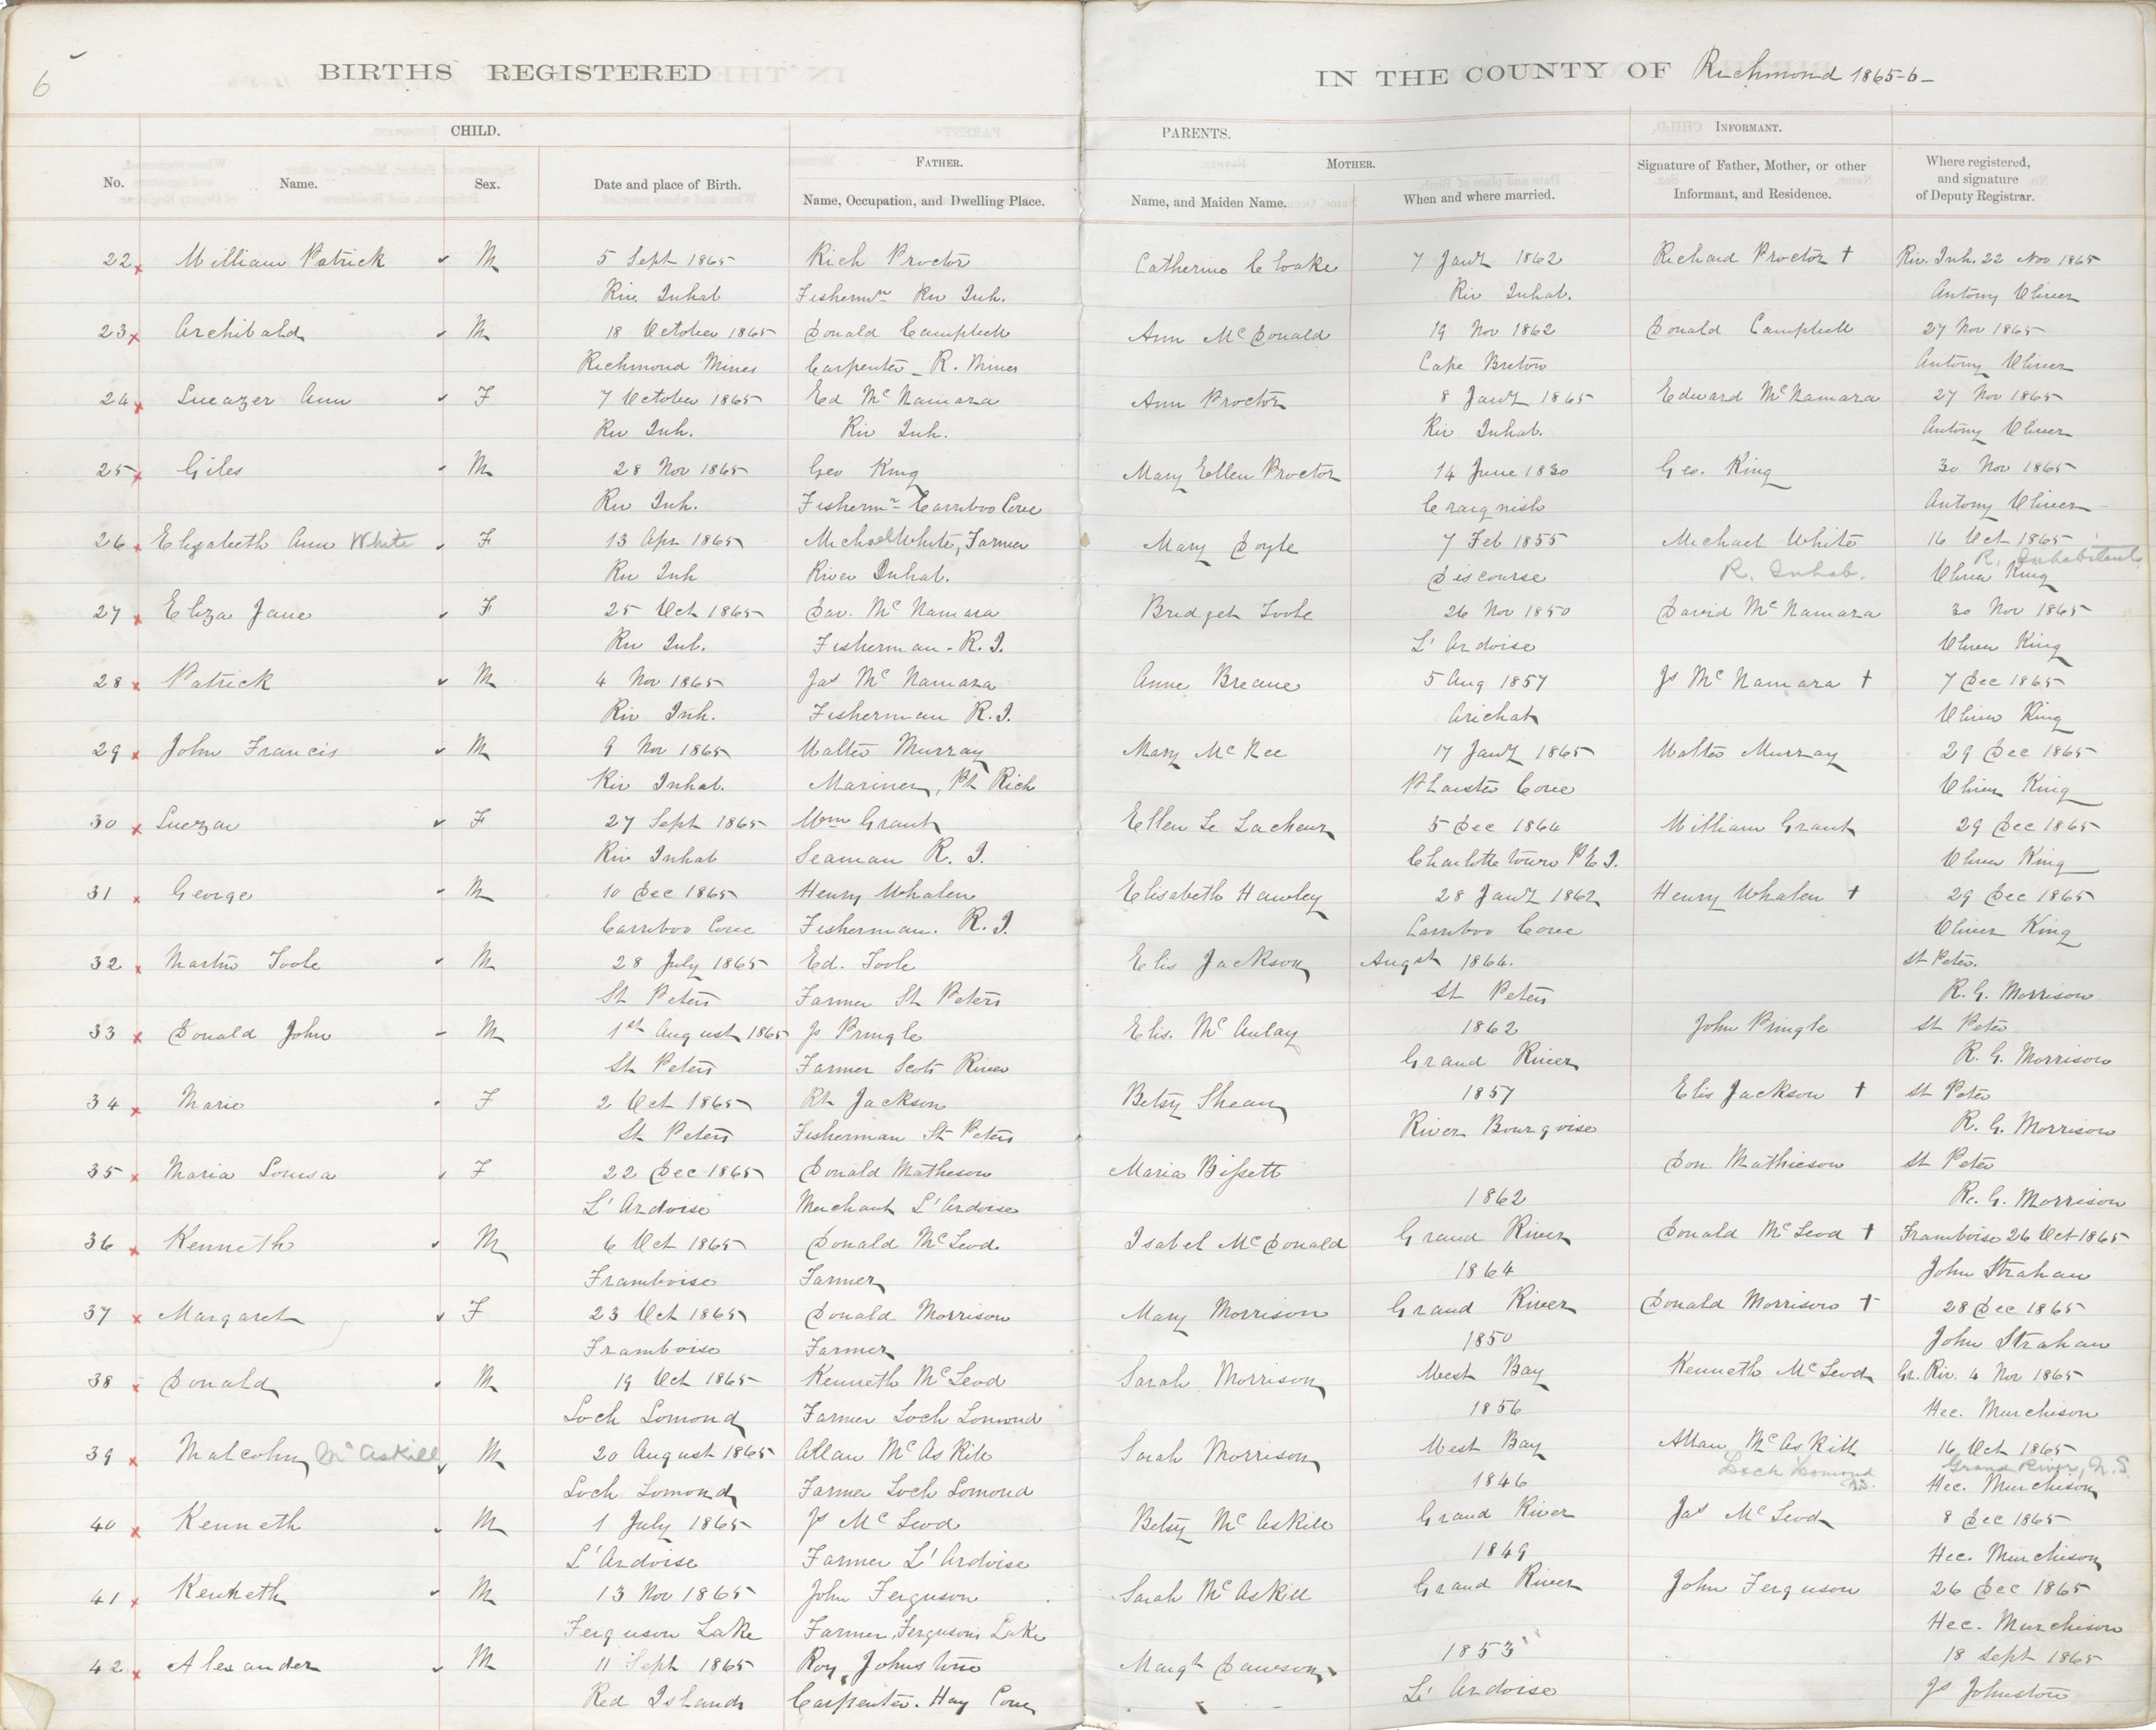 6
BIRTHS REGISTERED IN THE COUNTY OF Richmond 1865-6-
CHILD. PARENTS. INFORMANT.
No. Name. Sex. Date and place of Birth. FATHER. Name, Occupation, and Dwelling Place. MOTHER. Name, and Maiden Name. When and where married. Signature of Father, Mother, or other Informant, and Residence. Where registered, and signature of Deputy Registrar.
22 x William Patrick M 5 Sept 1865 Rich Proctor Catherine Cloake 7 Jany 1862 Richard Proctor + Riv. Inh. 22 Nov 1865
Riv. Inhab Fishermn Riv Inh. Riv Inhab. Antony Oliver
23 x Archibald M 18 October 1865 Donald Campbell Ann McDonald 19 Nov 1862 Donald Campbell 27 Nov 1865
Richmond Mines Carpenter _ R. Mines Cape Breton Antony Oliver
24 x Lueazer Ann F 7 October 1865 Ed McNamara Ann Proctor 8 Jany 1865 Edward McNamara 27 Nov 1865
Riv Inh. Riv Inh. Riv Inhab. Antony Oliver
25 x Giles M 28 Nov 1865 Geo King Mary Ellen Proctor 14 June 1830 Geo. King 30 Nov 1865
Riv Inh. Fishermn Carriboo Cove Craignish Antony Oliver
26 x Elizabeth Ann White F 13 Apr 1865 Michael White, Farmer Mary Doyle 7 Feb 1855 Michael White 16 Oct 1865
Riv Inh River Inhab. Discourse R. Inhab. R. Inhabitants Oliver King
27 x Eliza Jane F 25 Oct 1865 Dav. McNamara Bridget Toole 26 Nov 1850 David McNamara 30 Nov 1865
Riv Inh. Fisherman - R. I. L'Ardoise Oliver King
28 x Patrick M 4 Nov 1865 Jas McNamara Anne Breane 5 Aug 1857 Js McNamara + 7 Dec 1865
Riv Inh. Fisherman R. I. Arichat Oliver King
29 x John Francis M 9 Nov 1865 Walter Murray Mary McKee 17 Jany 1865 Walter Murray 29 Dec 1865
Riv Inhab. Mariner, Pt Rich Plaister Cove Oliver King
30 x Luezar F 27 Sept 1865 Wm Grant Ellen Le Lacheur 5 Dec 1864 William Grant 29 Dec 1865
Riv Inhab Seaman R. I. Charlottetown P. E. I. Oliver King
31 x George M 10 Dec 1865 Henry Whalen Elisabeth Hawley 28 Jany 1862 Henry Whalen + 29 Dec 1865
Carriboo Cove Fisherman. R. I. Carriboo Cove Oliver King
32 x Martin Toole M 28 July 1865 Ed. Toole Elis Jackson Augst 1864. St Peter.
St Peters Farmer St Peters St Peters R. G. Morrison
33 x Donald John M 1st August 1865 Js Pringle Elis. McAulay 1862 John Pringle St Peter
St Peters Farmer Scots River Grand River R. G. Morrison
34 x Marie F 2 Oct 1865 Rt Jackson Betsy Shean 1857 Elis Jackson + St Peter
St Peters Fisherman St Peters River Bourgoise R. G. Morrison
35 x Maria Louisa F 22 Dec 1865 Donald Matheson Maria Bissett Don. Mathieson St Peter
L'Ardoise Merchant L'Ardoise 1862 R. G. Morrison
36 x Kenneth M 6 Oct 1865 Donald McLeod Isabel McDonald Grand River Donald McLeod + Framboise 26 Oct 1865
Framboise Farmer 1864 John Strahan
37 x Margaret F 23 Oct 1865 Donald Morrison Mary Morrison Grand River Donald Morrison + 28 Dec 1865
Framboise Farmer 1850 John Strahan
38 x Donald M 19 Oct 1865 Kenneth McLeod Sarah Morrison West Bay Kenneth McLeod Gr. Riv. 4 Nov 1865
Loch Lomond Farmer Loch Lomond 1856 Hec. Murchison
39 x Malcolm McAskill M 20 August 1865 Allan McAskill Sarah Morrison West Bay Allan McAskill 16 Oct 1865
Loch Lomond Farmer Loch Lomond 1846 Loch Lomond Grand River, N. S. Hec. Murchison
40 x Kenneth M 1 July 1865 Js McLeod Betsy McAskill Grand River Jas McLeod 8 Dec 1865
L'Ardoise Farmer L'Ardoise 1849 Hec. Murchison
41 x Kenneth M 13 Nov 1865 John Ferguson Sarah McAskill Grand River John Ferguson 26 Dec 1865
Ferguson Lake Farmer, Fergusons Lake 1853 Hec. Murchison
42 x Alexander M 11 Sept 1865 Roy Johnstone Margt Dawson L'Ardoise 18 Sept 1865
Red Islands Carpenter. Hay Cove Js Johnston